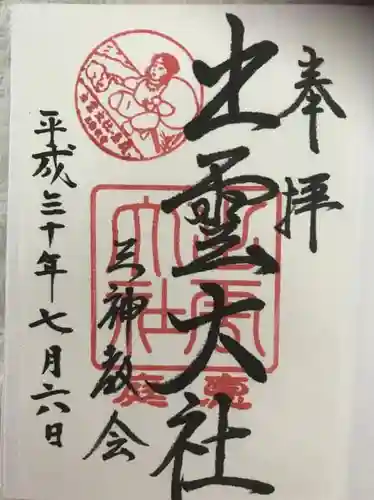 奉拝
出雲大社
三神教会
平成三十年七月六日
出雲大社